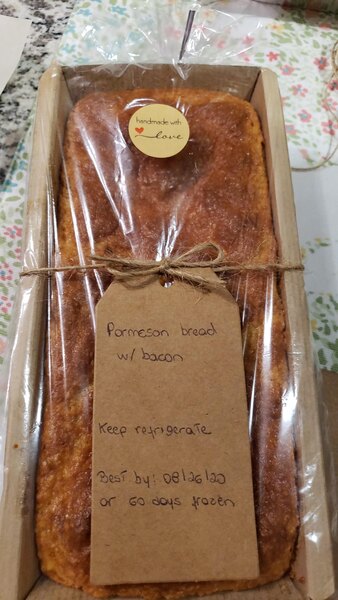 handmade with
love
Parmeson bread
w/ bacon
Keep refrigerate
Best by: 08/26/20
or 60 days frozen